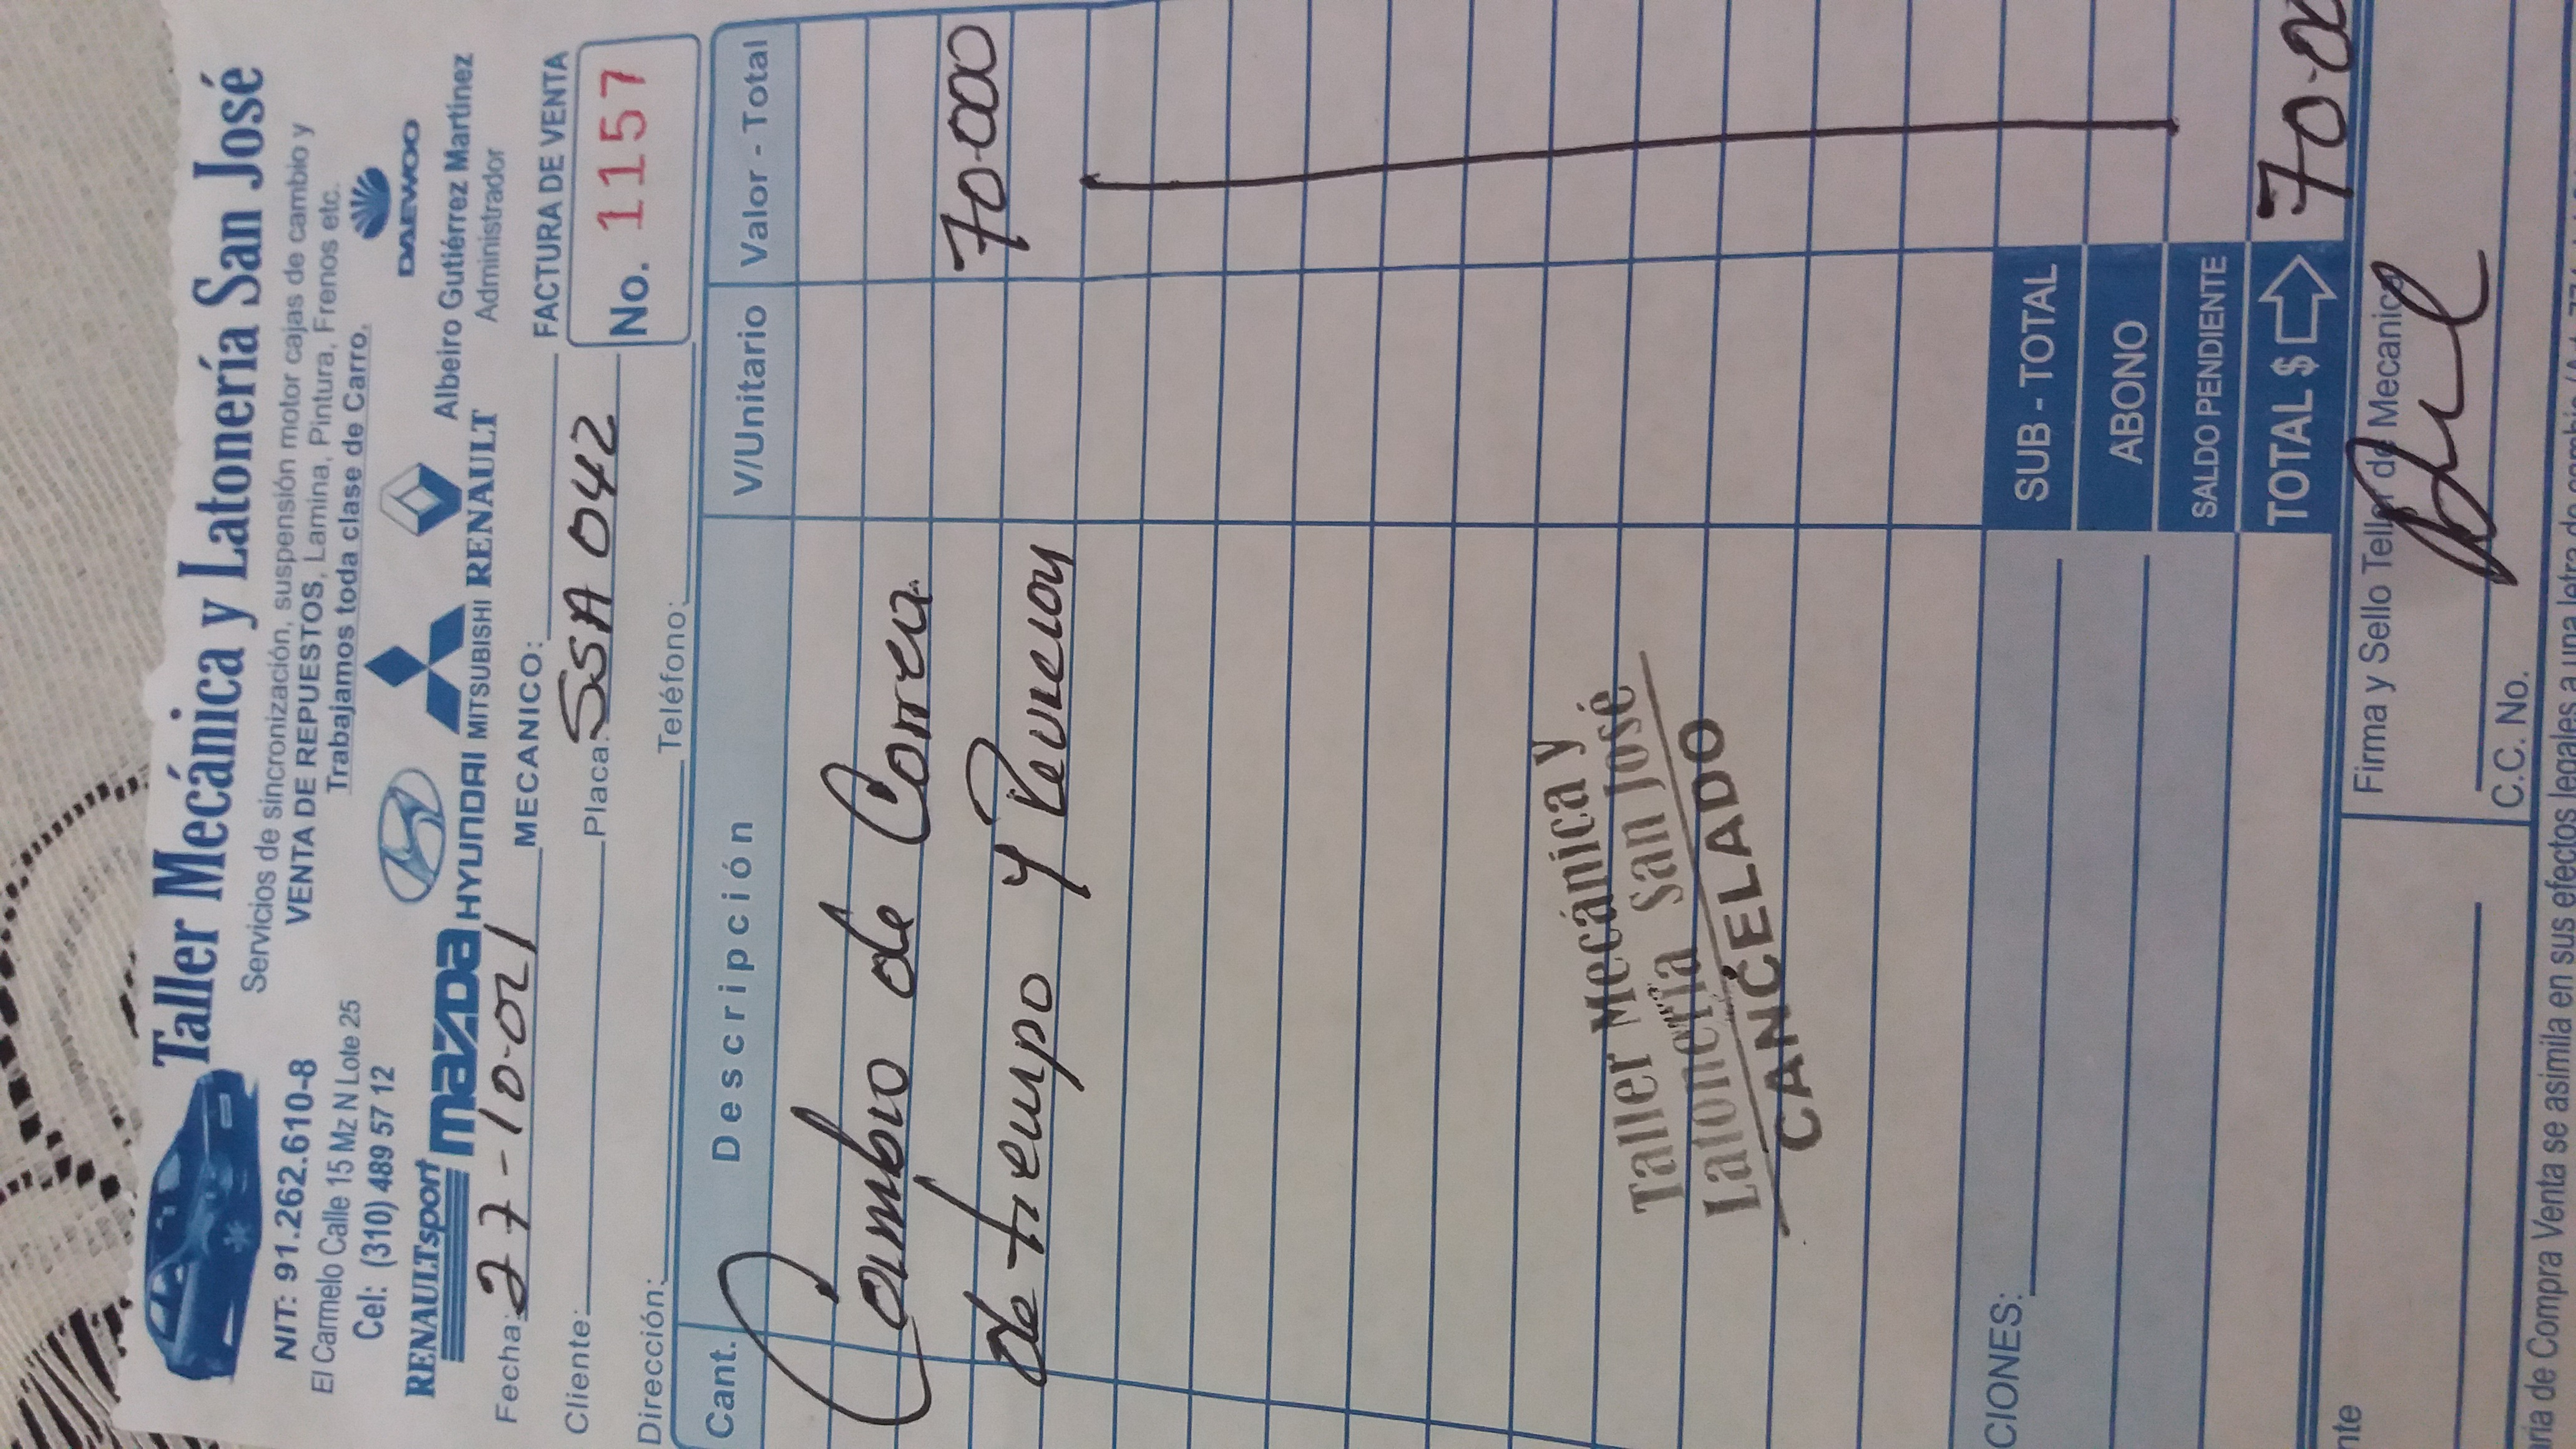 Taller Mecánica y Latonería San José
Servicios de sincronización, suspensión motor cajas de cambio y
VENTA DE REPUESTOS, Lamina, Pintura, Frenos etc.
Trabajamos toda clase de Carro.
NIT: 91.262.610-8
El Carmelo Calle 15 Mz N Lote 25
Cel: (310) 489 57 12
RENAULTsport
mazda
HYUNDAI
MITSUBISHI
RENAULT
DAEWOO
Albeiro Gutiérrez Martínez
Administrador
Fecha: 27-10-021 MECANICO:
FACTURA DE VENTA
Cliente: Placa: SSA 042
No. 1157
Dirección: Teléfono:
Cant. Descripción V/Unitario Valor - Total
Cambio de Correa
de tiempo y Revision 70.000
Taller Mecánica y
Latonería San José
CANCELADO
CIONES: SUB - TOTAL
ABONO
SALDO PENDIENTE
TOTAL $ 70.00
Firma y Sello Teller de Mecanica
nte C.C. No.
ría de Compra Venta se asimila en sus efectos legales a una letra de cambio